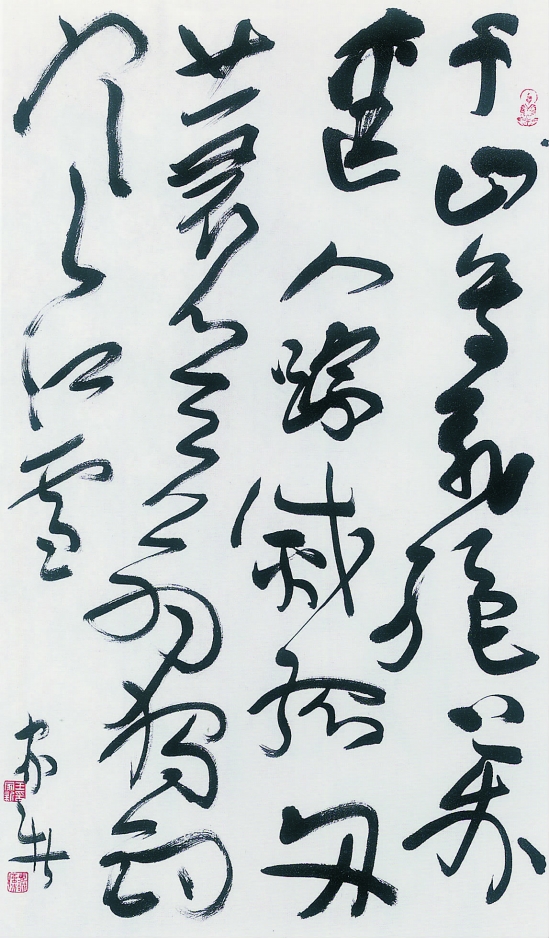 千山鳥飛絕萬
徑人踪滅孤舟
蓑笠翁獨釣
寒江雪